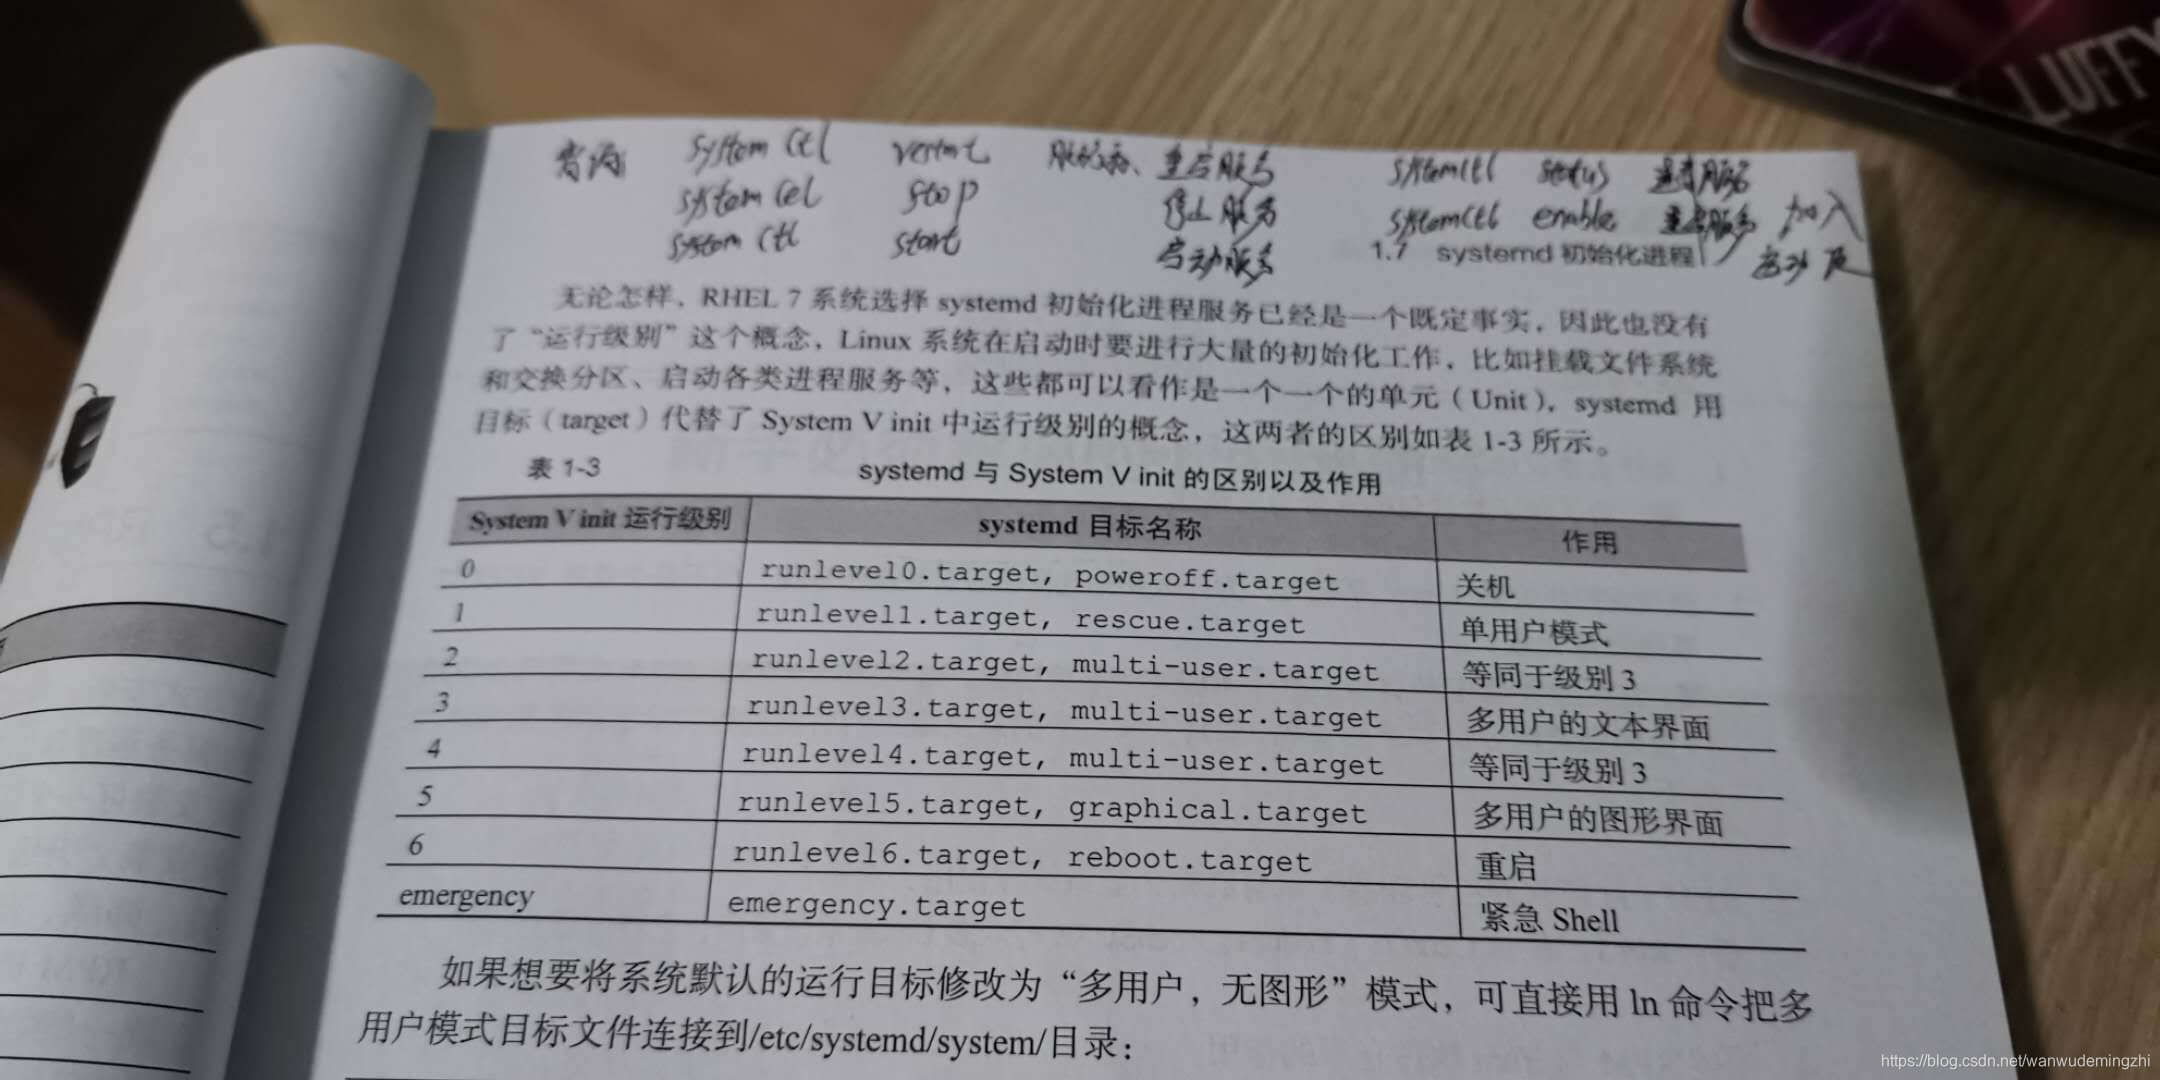 systemctl restart 重启服务 systemctl status 服务
systemctl stop 停止服务 systemctl enable 服务 加入
systemctl start 启动服务
1.7 systemd 初始化进程
无论怎样，RHEL 7 系统选择 systemd 初始化进程服务已经是一个既定事实，因此也没有
了“运行级别”这个概念，Linux 系统在启动时要进行大量的初始化工作，比如挂载文件系统
和交换分区、启动各类进程服务等，这些都可以看作是一个一个的单元（Unit），systemd 用
目标（target）代替了 System V init 中运行级别的概念，这两者的区别如表 1-3 所示。
表 1-3 systemd 与 System V init 的区别以及作用
System V init 运行级别 systemd 目标名称 作用
0 runlevel0.target, poweroff.target 关机
1 runlevel1.target, rescue.target 单用户模式
2 runlevel2.target, multi-user.target 等同于级别 3
3 runlevel3.target, multi-user.target 多用户的文本界面
4 runlevel4.target, multi-user.target 等同于级别 3
5 runlevel5.target, graphical.target 多用户的图形界面
6 runlevel6.target, reboot.target 重启
emergency emergency.target 紧急 Shell
如果想要将系统默认的运行目标修改为“多用户，无图形”模式，可直接用 ln 命令把多
用户模式目标文件连接到/etc/systemd/system/目录：
LUFFY
https://blog.csdn.net/wanwudemingzhi